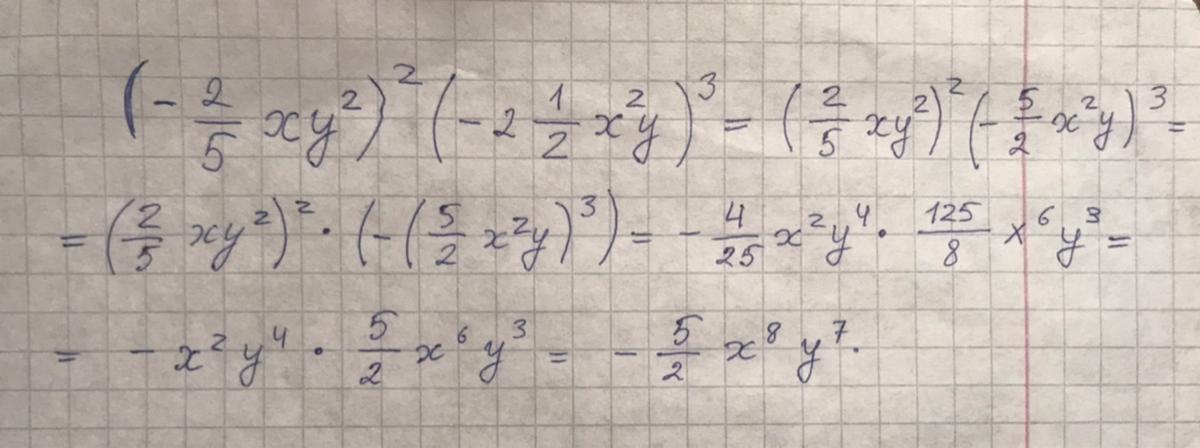 (-2/5 xy²)² (-2 1/2 x²y)³ = (2/5 xy²)² (-5/2 x²y)³ =
= (2/5 xy²)² · (-(5/2 x²y)³) = - 4/25 x²y⁴ · 125/8 x⁶y³ =
= - x²y⁴ · 5/2 x⁶y³ = - 5/2 x⁸y⁷.